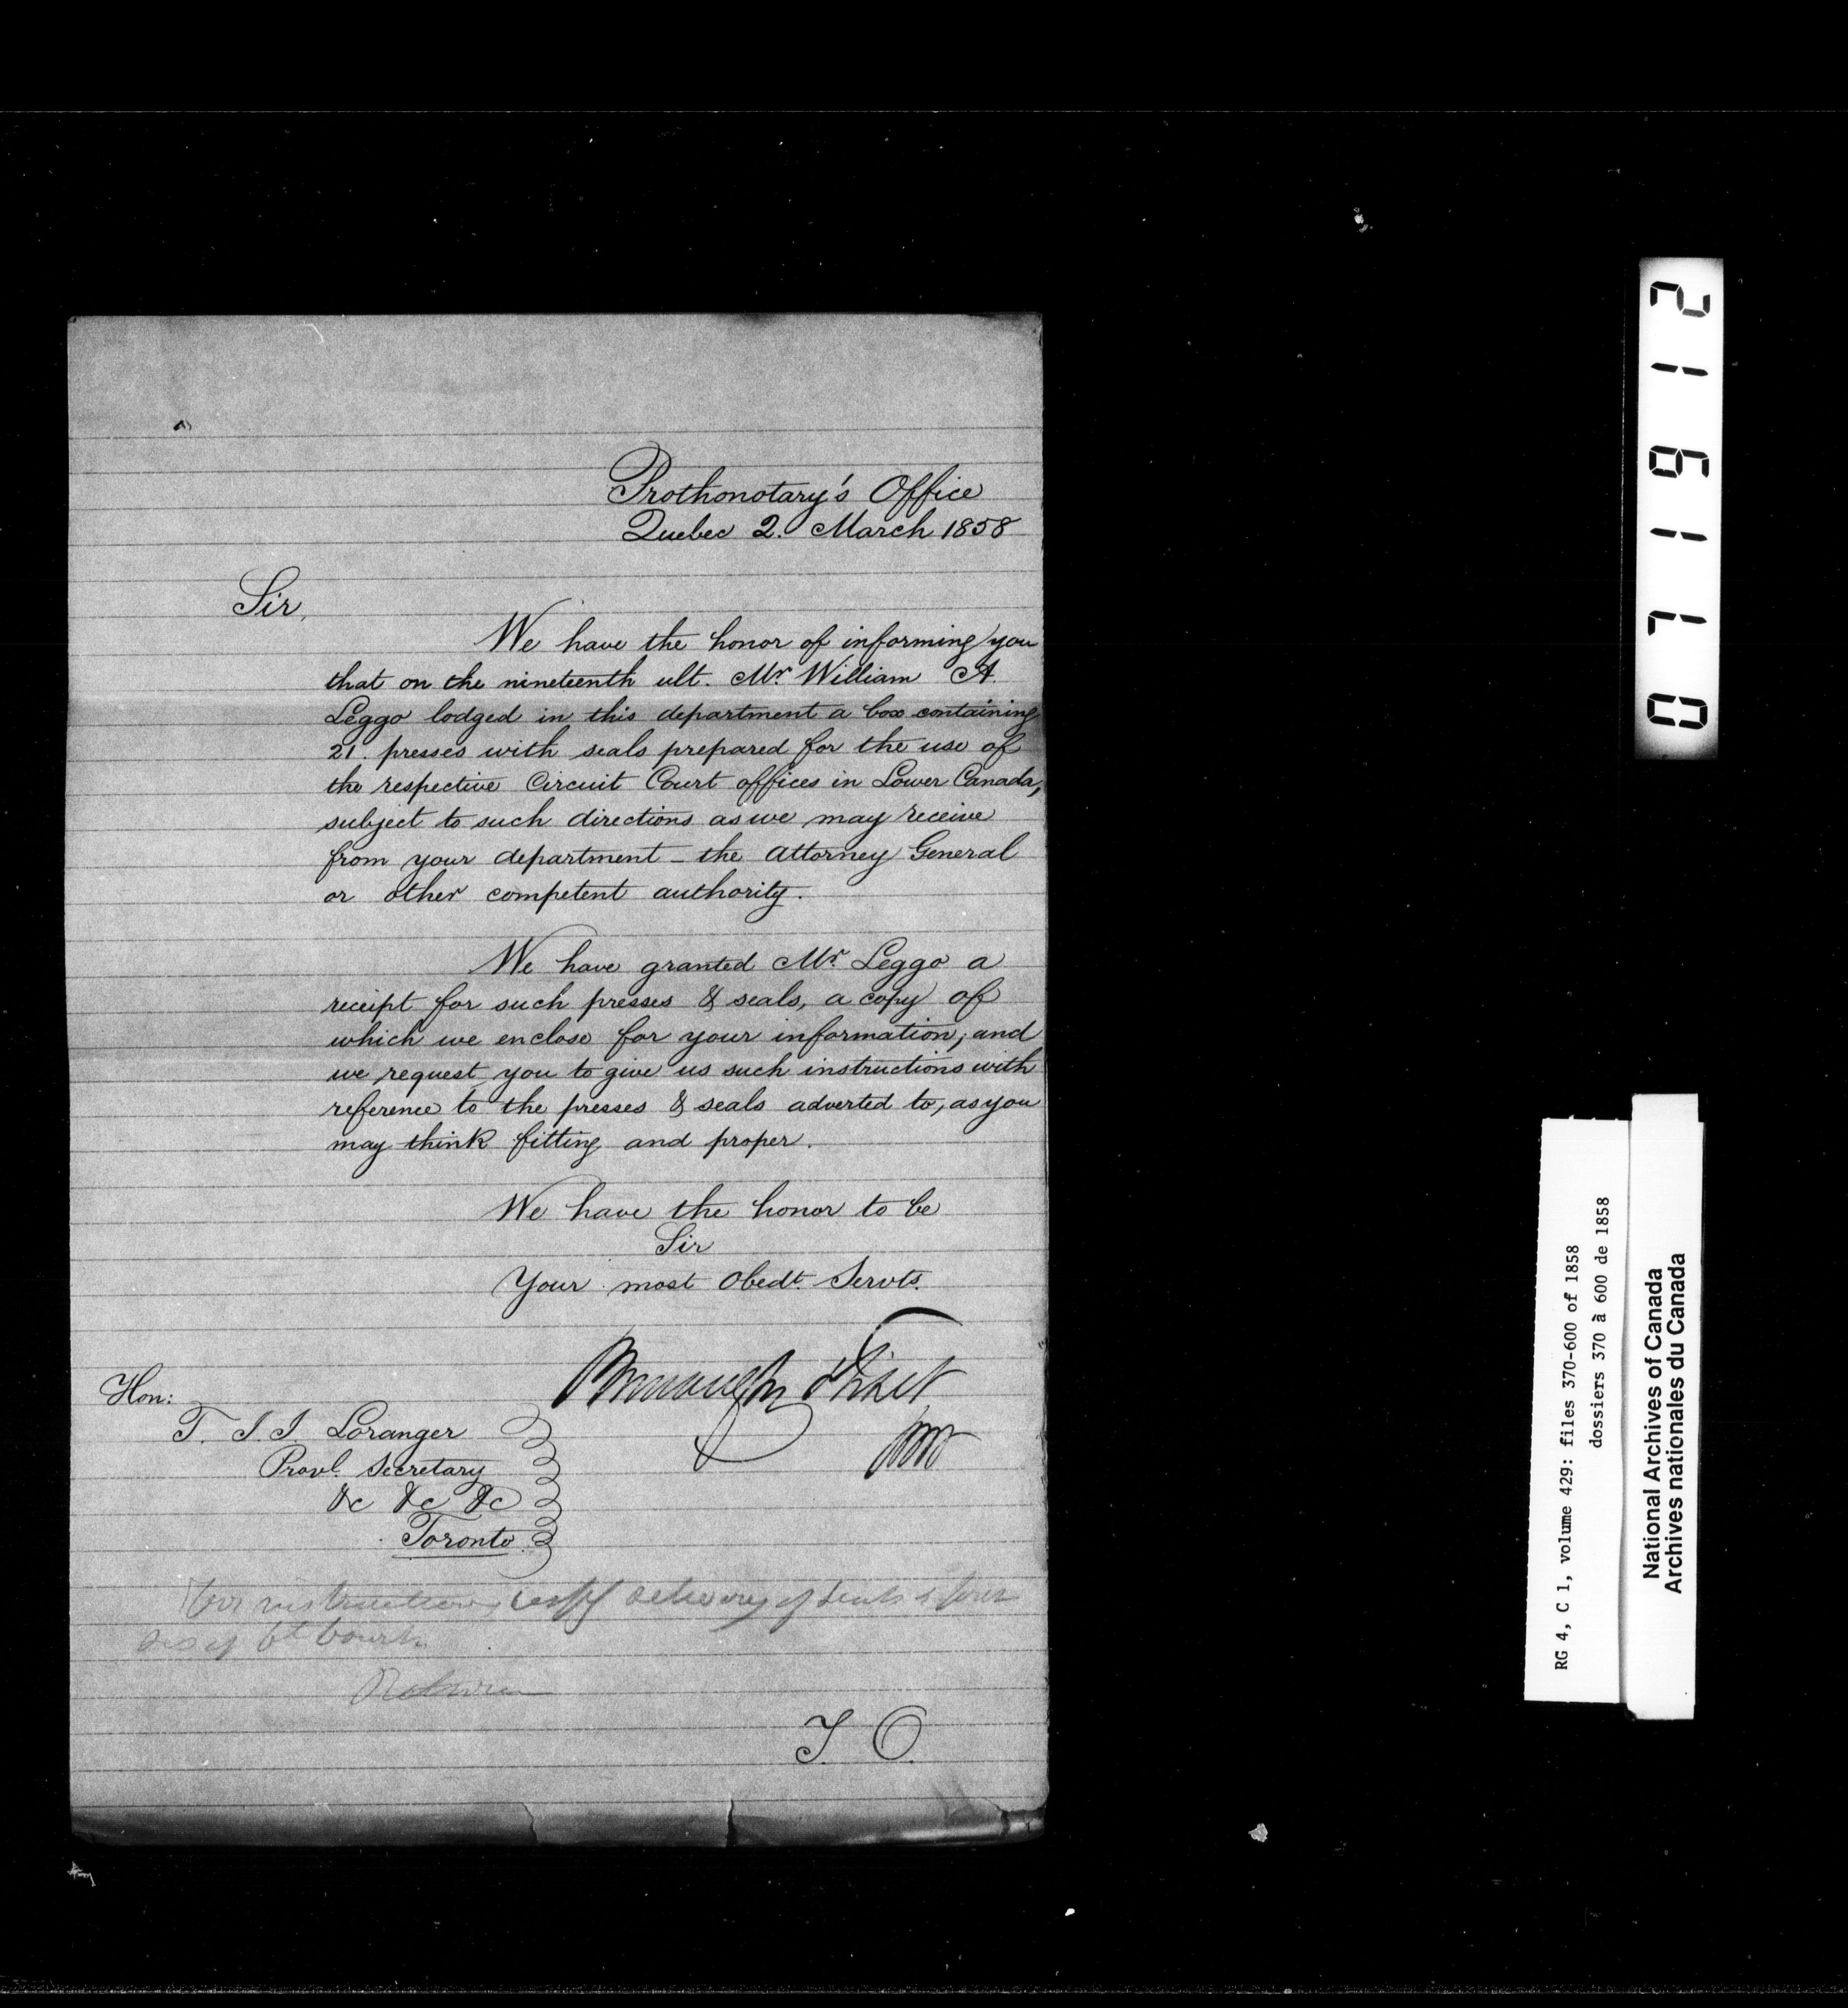 Prothonotary's Office
Quebec 2. March 1858
Sir,
We have the honor of informing you
that on the nineteenth ult. Mr. William A.
Leggo lodged in this department a box containing
21. presses with seals prepared for the use of
the respective Circuit Court offices in Lower Canada,
subject to such directions as we may receive
from your department _ the Attorney General
or other competent authority.
We have granted Mr. Leggo a
receipt for such presses & seals, a copy of
which we enclose for your information; and
we request you to give us such instructions with
reference to the presses & seals adverted to, as you
may think fitting and proper.
We have the honor to be
Sir
Your most Obedt. Servts.
Hon:
T. J. J. Loranger
Provl. Secretary
&c &c &c
Toronto
For instructions delivery of seals
Court
J. O.
071612
RG 4, C 1, volume 429: files 370-600 of 1858
dossiers 370 à 600 de 1858
National Archives of Canada
Archives nationales du Canada